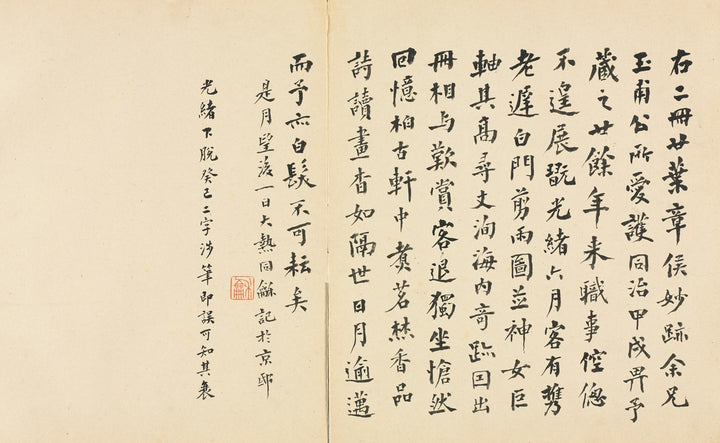 右二冊廿葉章侯妙跡余兄
玉甫公所愛護同治甲戌畀予
藏之廿餘年來職事倥傯
不遑展翫光緒六月客有攜
老遲白門剪雨圖並神女巨
軸其高尋丈洵海内奇跡囙出
冊相与歎賞客退獨坐愴然
回憶柏古軒中煮茗焚香品
詩讀畫杳如隔世日月逾邁
而予亦白髮不可耘矣
是月望後一日大熱同龢記於京邸
光緒下脫癸巳二字涉筆即誤可知其衰